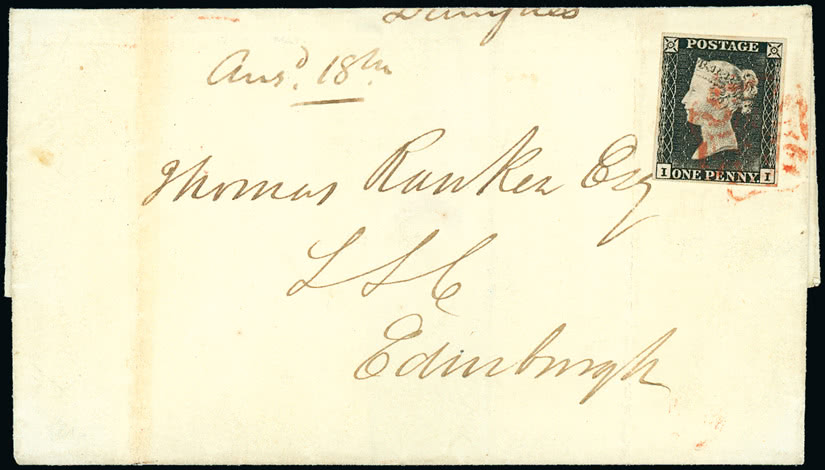 Ansd. 18th
POSTAGE
I ONE PENNY. I
Thomas Ranken Esq
Edinburgh